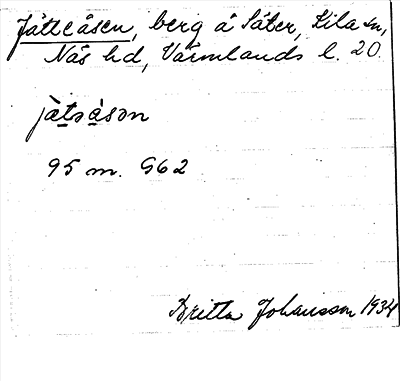 Jätteåsen, berg å Säter, Kila sn,
Näs hd, Värmlands l. 20.
jä̀təå̀sən
95 m. G62
Britta Johansson 1934